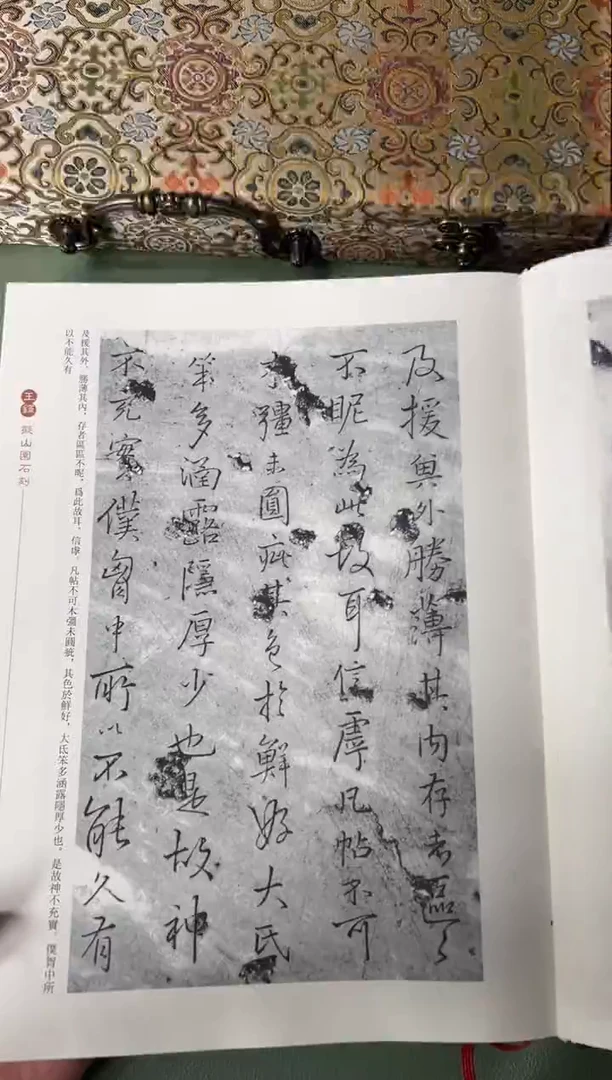 及援與外勝薄其內存者區〻
不昵為此故耳信虖凡帖不可
木彊未圓疵其色於鮮好大氐
笨多涵露隱厚少也是故神
不充實僕胷中所以不能久有
及援其外，勝薄其內，存者區區不昵，爲此故耳，信虖。凡帖不可木彊未圓疵，其色於鮮好，大氐笨多涵露隱厚少也，是故神不充實。僕胷中所
以不能久有
王鐸
擬山園石刻